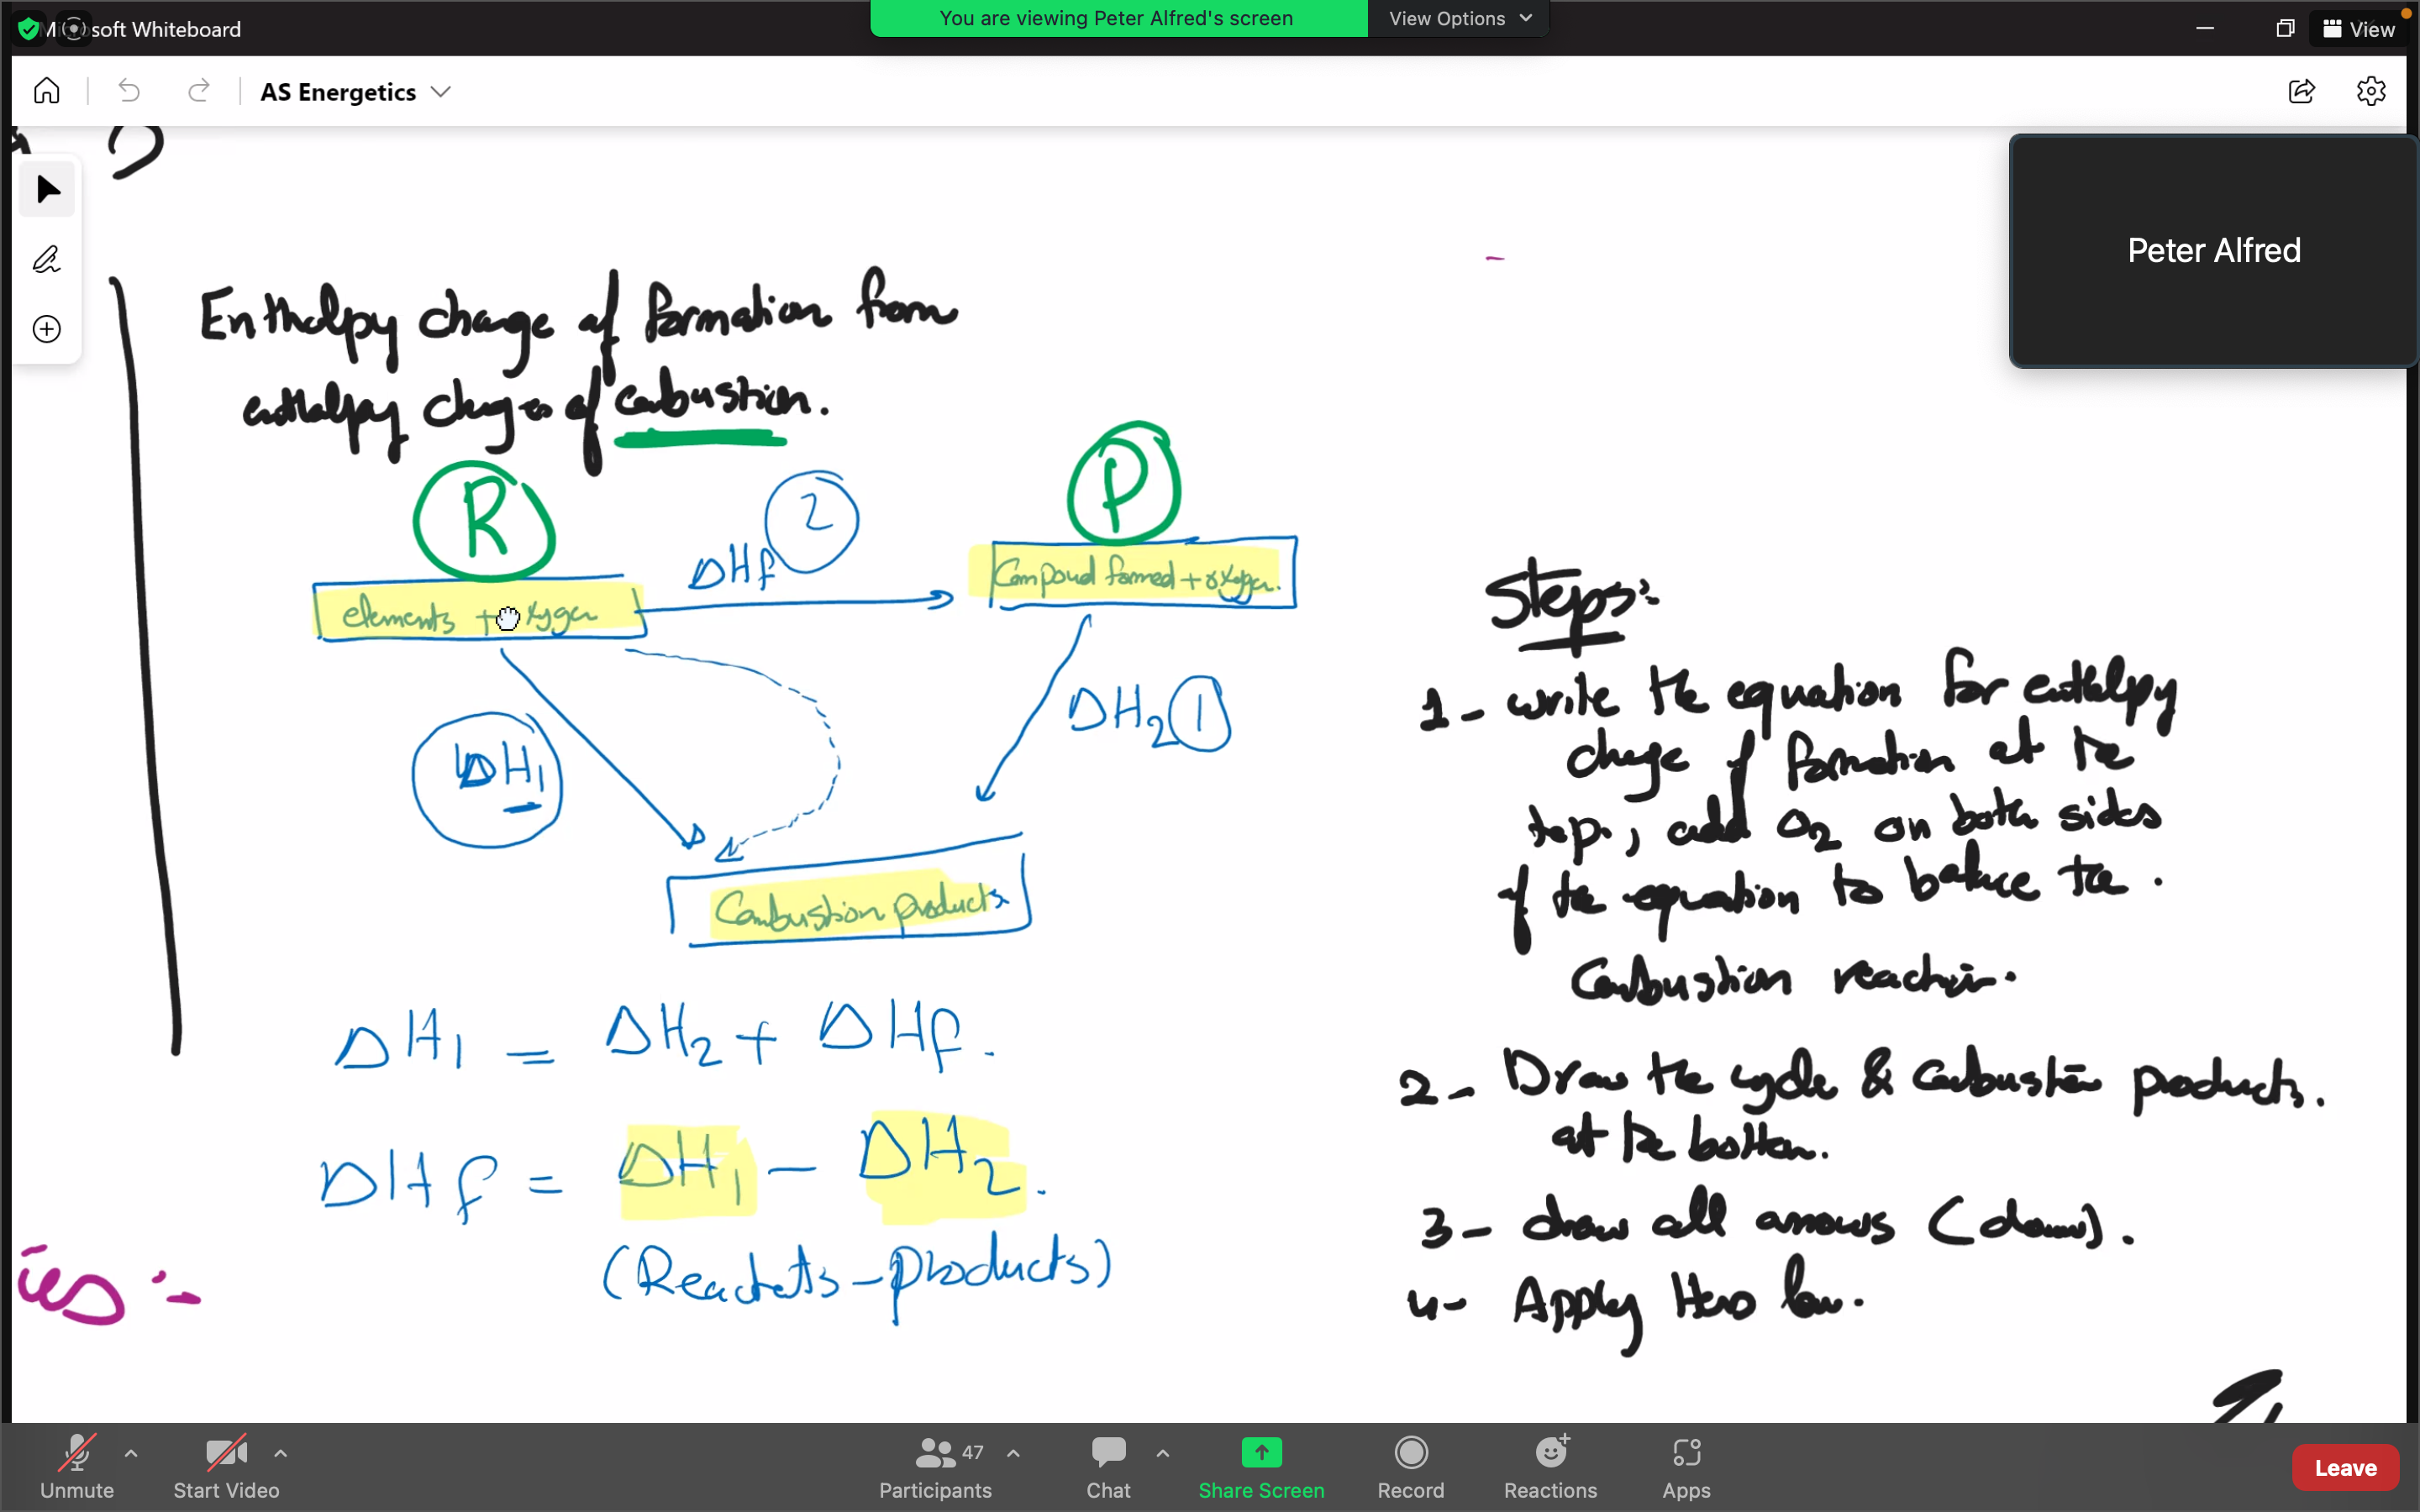 Microsoft Whiteboard
You are viewing Peter Alfred's screen
View Options
View
AS Energetics
Peter Alfred
Enthalpy change of formation from
enthalpy changes of combustion.
R
P
2
ΔHf
elements + oxygen
Compound formed + oxygen.
ΔH1
ΔH2 1
Combustion products
ΔH1 = ΔH2 + ΔHf.
ΔHf = ΔH1 - ΔH2.
(Reactants - products)
Steps:
1- write the equation for enthalpy
change of formation at the
top, add O2 on both sides
of the equation to balance the.
Combustion reaction.
2- Draw the cycle & Combustion products.
at the bottom.
3- draw all arrows (down).
4- Apply Hess law.
ies :-
Unmute
Start Video
47
Participants
Chat
Share Screen
Record
Reactions
Apps
Leave